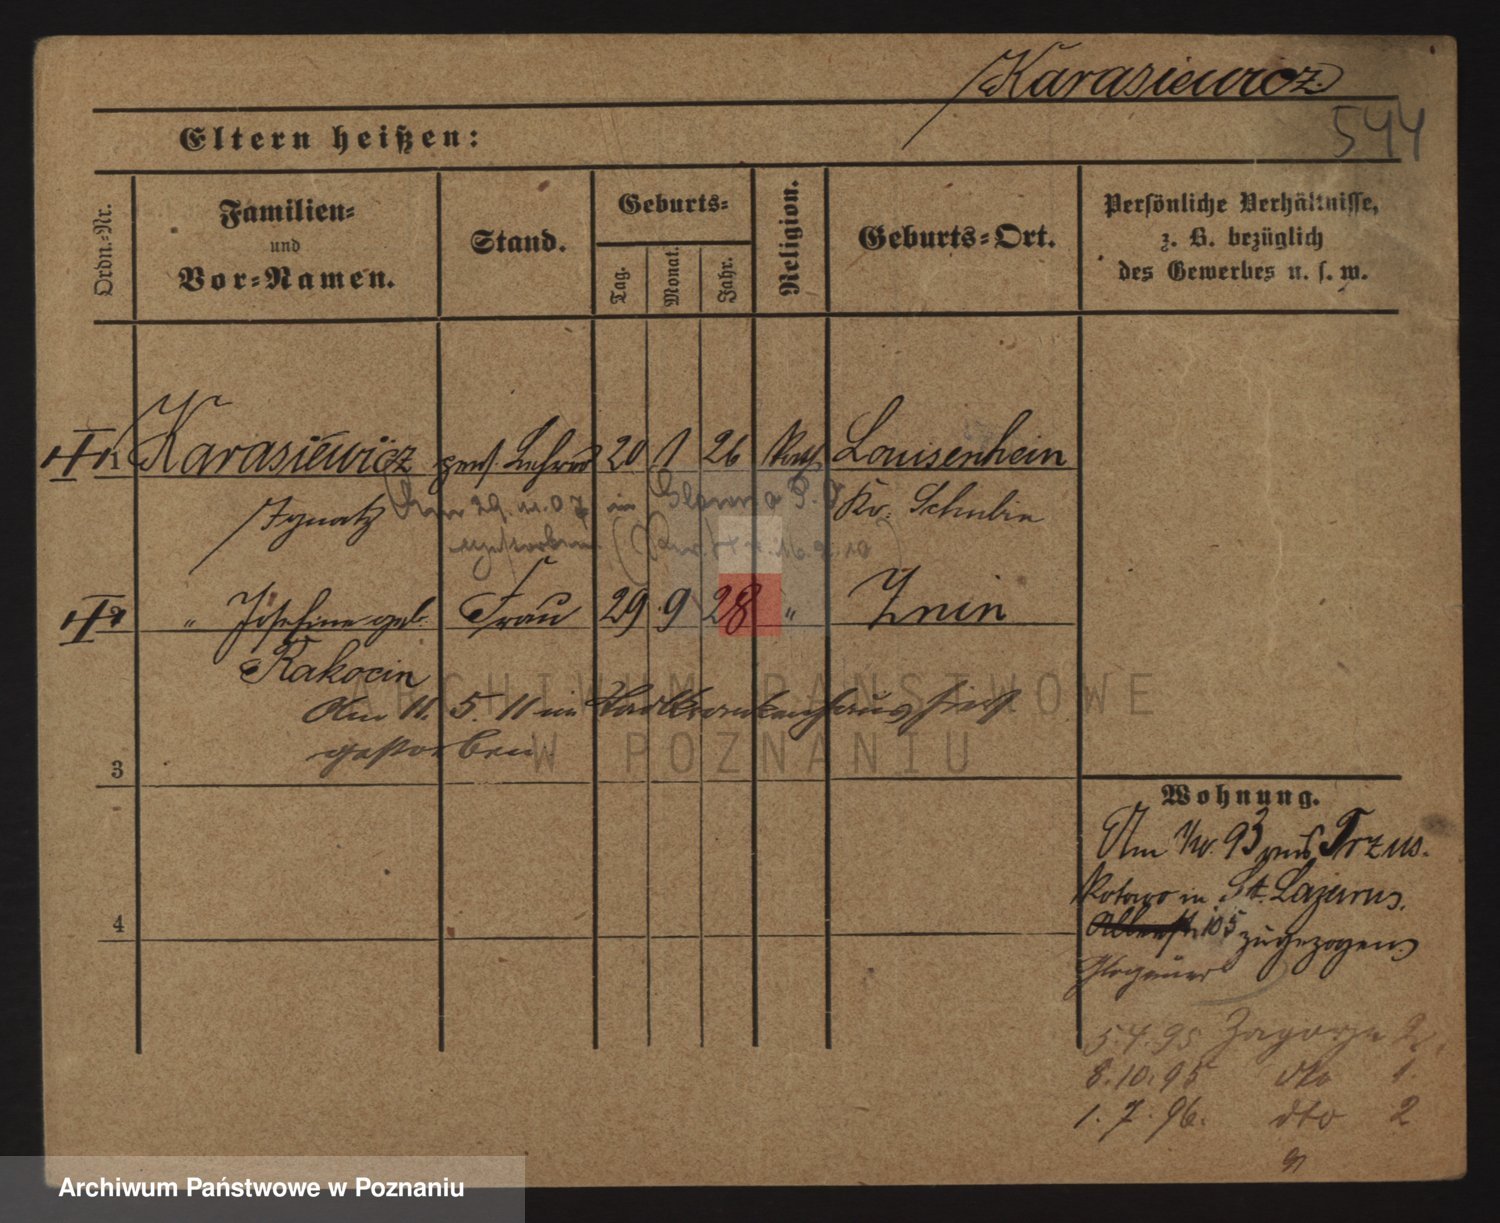 Karasiewicz
544
Eltern heißen:
Ordn.-Nr.
Familien-
und
Vor-Namen.
Stand.
Geburts-
Tag.
Monat.
Jahr.
Religion.
Geburts-Ort.
Persönliche Verhältnisse,
z. B. bezüglich
des Gewerbes u. s. w.
1 Karasiewicz pens. Lehrer 20 1 26 kath. Louisenhein
Ignatz Kr. Schubin
Am 29.11.07 in
gestorben
" Josefine geb. Frau 29 9 28 " Znin
Rakocin
Am 11. 5. 11 im hier
gestorben
3
4
Wohnung.
Am 93 aus Trzus-
kotowo in St. Lazarus.
105 zugezogen
Glogauer
5.4.95 Zagorze 2
8.10.95 dto 1.
1.7.96. dto 2
ARCHIWUM PAŃSTWOWE
W POZNANIU
Archiwum Państwowe w Poznaniu